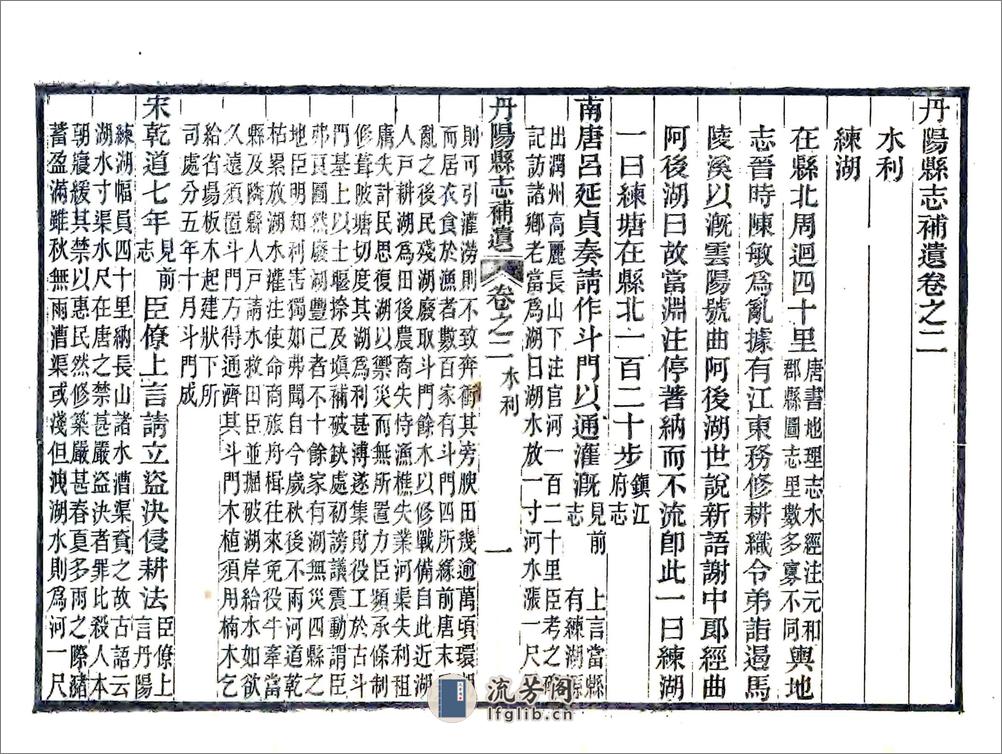 丹陽縣志補遺卷之二
水利
練湖
在縣北周迴四十里唐書地理志水經注元和輿地
郡縣圖志里數多寡不同
志晉時陳敏爲亂據有江東務修耕織令弟諧遏馬
陵溪以漑雲陽號曲阿後湖世說新語謝中郎經曲
阿後湖曰故當淵注停著納而不流卽此一曰練湖
一曰練塘在縣北一百二十步鎭江
府志
南唐呂延貞奏請作斗門以通灌漑見前
志
上言當縣
有練湖源
出潤州高麗長山下注官河一百二十里臣考之碑
記訪諸鄉老當爲湖日湖水放一寸河水漲一尺
丹陽縣志補遺 卷之二 水利 一
則可引灌澇則不致奔衝其旁腴田幾逾萬頃環湖
而居衣食於漁者數百家有斗門四所緣前唐末兵
亂之後民殘湖廢取斗門餘木以修戰備自此近湖
人戶耕湖爲田後農商失恃漁樵失業河渠失利租
庸失計民思復湖以禦災而無所置力臣頻承條制
修葺陂塘切度其湖爲利甚溥遂集財役工於古斗
門基上以土堰捺及塡補破鈌處初謗議震動謂臣
弗良圖然廢湖豐己者不十餘家有湖無災四縣之
地臣明知利害獨如弗聞自今歲秋後不雨河道乾
枯累放湖水灌注使命商旅舟楫往來免役牛牽當
縣及隣縣人戶請水救田臣並掘破岸給水如欲
久遠須置斗門方得通濟其斗門木植須用楠木乞
給省場板木起建狀下所
司處分五年十月斗門成
宋乾道七年見前
志
臣僚上言請立盜決侵耕法臣僚上
言丹陽
練湖幅員四十里納長山諸水漕渠資之故古語云
湖水寸渠水尺在唐之禁甚嚴盜決者罪比殺人本
朝寢緩其禁以惠民然修築嚴甚春夏多雨之際豬
蓄盈滿雖秋無雨漕渠或淺但洩湖水則爲河一尺
流芳閣
lfglib.cn